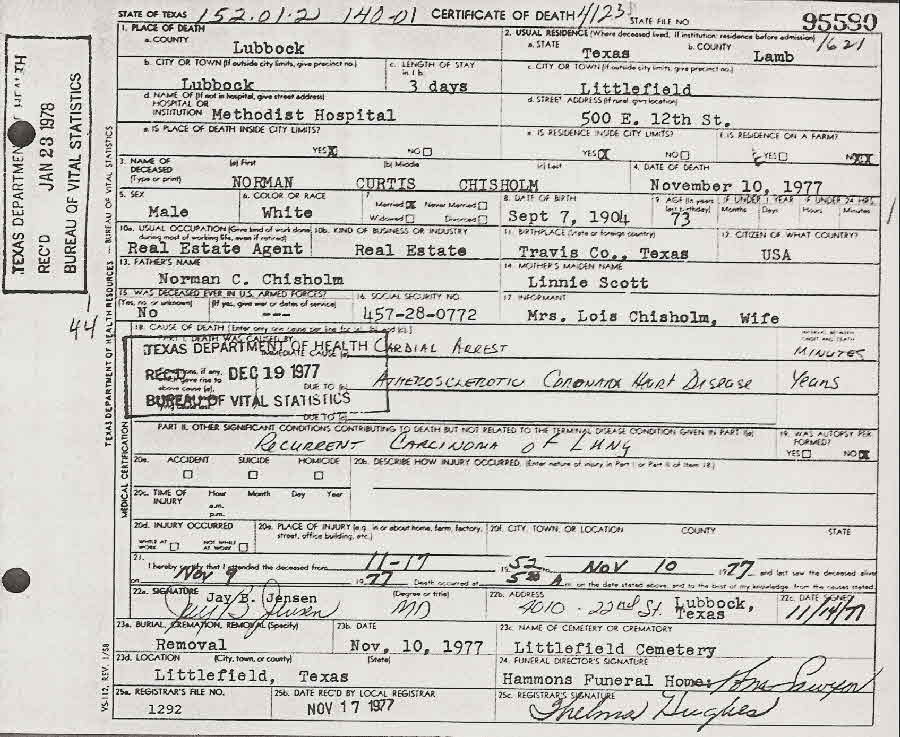 STATE OF TEXAS 152.01.2 140-01 CERTIFICATE OF DEATH 4123 STATE FILE NO 95580
1. PLACE OF DEATH
a. COUNTY Lubbock
2. USUAL RESIDENCE (Where deceased lived. If institution: residence before admission)
a. STATE Texas b. COUNTY Lamb 1621
b. CITY OR TOWN (If outside city limits, give precinct no.) Lubbock
c. LENGTH OF STAY in 1 b. 3 days
c. CITY OR TOWN (If outside city limits, give precinct no.) Littlefield
d. NAME OF (If not in hospital, give street address) HOSPITAL OR INSTITUTION Methodist Hospital
d. STREET ADDRESS (If rural, give location) 500 E. 12th St.
e. IS PLACE OF DEATH INSIDE CITY LIMITS? YES X NO
e. IS RESIDENCE INSIDE CITY LIMITS? YES X NO
f. IS RESIDENCE ON A FARM? YES NO XX
3. NAME OF DECEASED (Type or print) (a) First NORMAN (b) Middle CURTIS (c) Last CHISHOLM
4. DATE OF DEATH November 10, 1977
5. SEX Male
6. COLOR OR RACE White
7. Married X Never Married Widowed Divorced
8. DATE OF BIRTH Sept 7, 1904
9. AGE (In years last birthday) 73
IF UNDER 1 YEAR Months Days
IF UNDER 24 HRS. Hours Minutes
10a. USUAL OCCUPATION (Give kind of work done during most of working life, even if retired) Real Estate Agent
10b. KIND OF BUSINESS OR INDUSTRY Real Estate
11. BIRTHPLACE (State or foreign country) Travis Co., Texas
12. CITIZEN OF WHAT COUNTRY? USA
13. FATHER'S NAME Norman C. Chisholm
14. MOTHER'S MAIDEN NAME Linnie Scott
15. WAS DECEASED EVER IN U.S. ARMED FORCES? (Yes, no, or unknown) No (If yes, give war or dates of service) ---
16. SOCIAL SECURITY NO. 457-28-0772
17. INFORMANT Mrs. Lois Chisholm, Wife
18. CAUSE OF DEATH [Enter only one cause per line for (a), (b), and (c).]
PART I. DEATH WAS CAUSED BY
IMMEDIATE CAUSE (a) CARDIAL ARREST
INTERVAL BETWEEN ONSET AND DEATH MINUTES
DUE TO (b) ATHEROSCLEROTIC CORONARY HEART DISEASE YEARS
DUE TO (c)
TEXAS DEPARTMENT OF HEALTH
REC'D DEC 19 1977
BUREAU OF VITAL STATISTICS
PART II. OTHER SIGNIFICANT CONDITIONS CONTRIBUTING TO DEATH BUT NOT RELATED TO THE TERMINAL DISEASE CONDITION GIVEN IN PART I(a)
RECURRENT CARCINOMA OF LUNG
19. WAS AUTOPSY PERFORMED? YES NO X
20a. ACCIDENT SUICIDE HOMICIDE
20b. DESCRIBE HOW INJURY OCCURRED. (Enter nature of injury in Part I or Part II of Item 18.)
20c. TIME OF INJURY Hour Month Day Year a.m. p.m.
20d. INJURY OCCURRED WHILE AT WORK NOT WHILE AT WORK
20e. PLACE OF INJURY (e.g. in or about home, farm, factory, street, office building, etc.)
20f. CITY, TOWN, OR LOCATION COUNTY STATE
21. I hereby certify that I attended the deceased from 11-17 1952 Nov 10 1977 and last saw the deceased alive
on Nov 9 1977 Death occurred at 5 A m. on the date stated above, and to the best of my knowledge, from the causes stated.
22a. SIGNATURE Jay B. Jensen (Degree or title) MD
22b. ADDRESS 4010 - 22nd St. Lubbock, Texas
22c. DATE SIGNED 11/14/77
23a. BURIAL, CREMATION, REMOVAL (Specify) Removal
23b. DATE Nov, 10, 1977
23c. NAME OF CEMETERY OR CREMATORY Littlefield Cemetery
23d. LOCATION (City, town, or county) (State) Littlefield, Texas
24. FUNERAL DIRECTOR'S SIGNATURE Hammons Funeral Home:
25a. REGISTRAR'S FILE NO. 1292
25b. DATE REC'D BY LOCAL REGISTRAR NOV 17 1977
25c. REGISTRAR'S SIGNATURE Thelma Hughes
TEXAS DEPARTMENT HEALTH
REC'D JAN 23 1978
BUREAU OF VITAL STATISTICS
44
TEXAS DEPARTMENT OF HEALTH RESOURCES — BUREAU OF VITAL STATISTICS
MEDICAL CERTIFICATION
VS-112, REV. 1/58